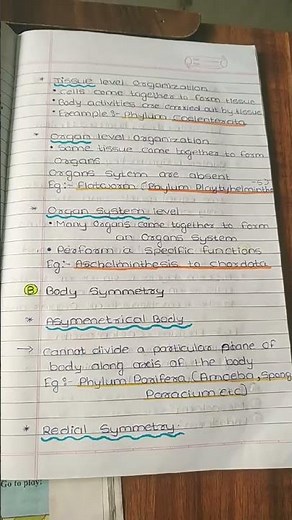 * Tissue level Organization
• Cells come together to form tissue
• Body activities are carried out by tissue
• Example :- Phylum Coelenterata
* Organ level Organization
• Some tissue come together to form
organs
Organs sytem are absent
Eg:- Flatworm (Phylum Playtyhelminthes
* Organ System level
• Many Organs come together to form
an Organs System
• Perform a specific functions
Eg:- Aschelminthesis to Chordata
B Body Symmetry
* Asymenetrical Body
→ Cannot divide a particular plane of
body along axis of the body
Eg:- Phylum Porifera (Amoeba, Spong
Parracium etc)
* Redial Symmetry
Go to play: